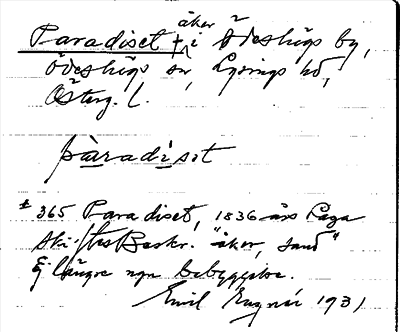 åker
Paradiset ‡ i Ödeshögs by,
Ödeshögs sn, Lysings hd,
Österg. l.
paradiset
‡ 365 Paradiset, 1836 års Laga
skiftes Beskr. "åker, sand"
Ej längre ngn bebyggelse.
Emil 1931